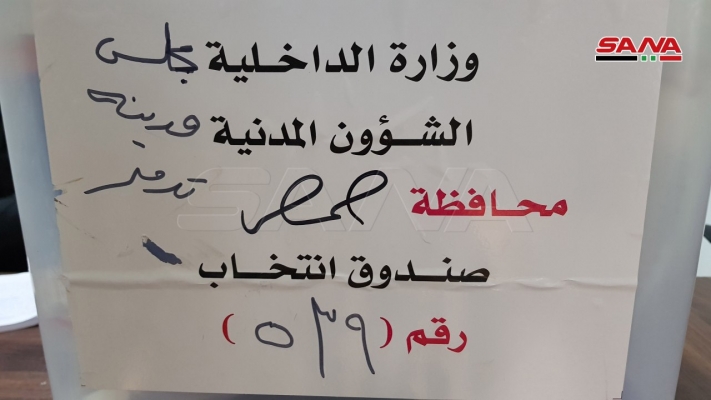 SANA
وزارة الداخلية مجلس
الشؤون المدنية مدينة
محافظة حمص تدمر
صندوق انتخاب
رقم (٥٣٩)
SANA